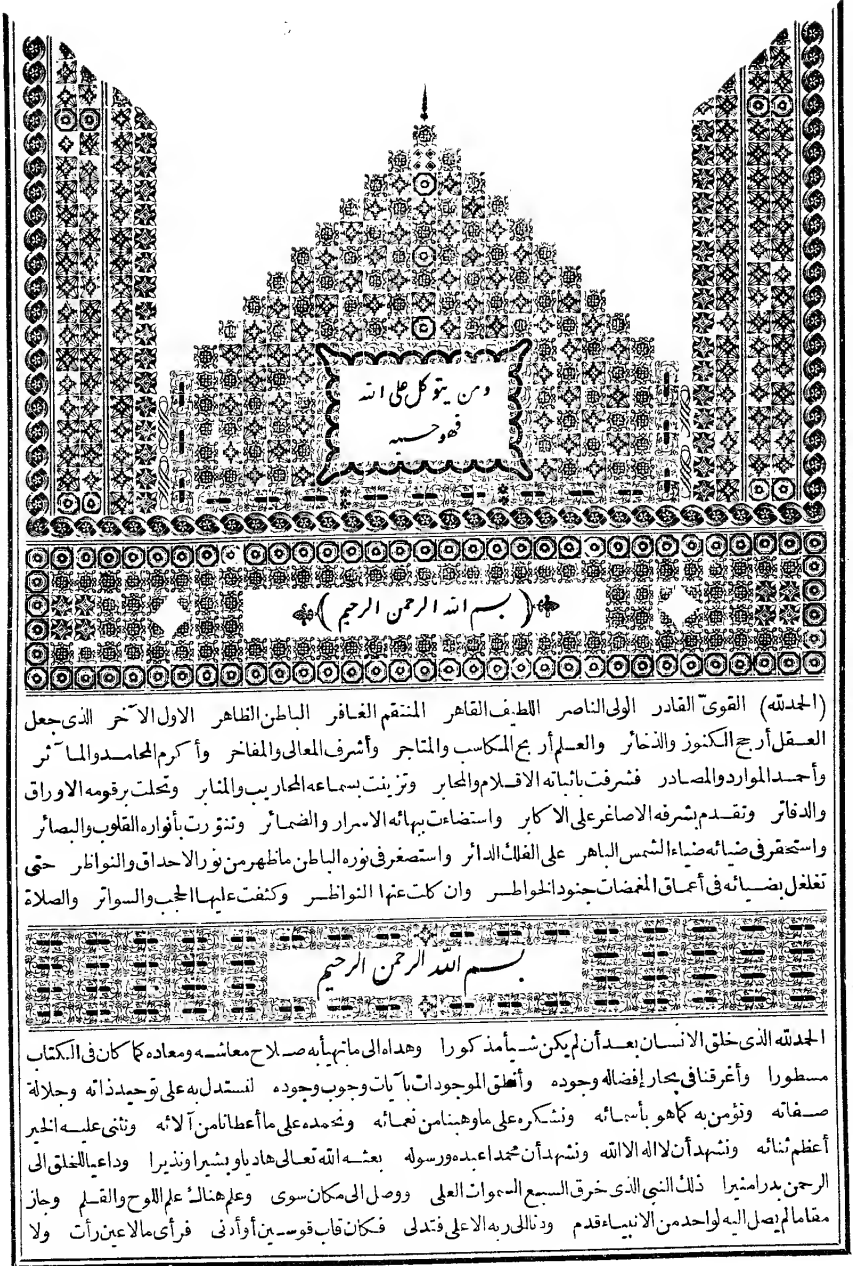 ومن يتوكل على الله
فهو حسبه
(بسم الله الرحمن الرحيم)
(الحمدلله) القوىّ القادر الولى الناصر اللطيف القاهر المنتقم الغافر الباطن الظاهر الاول الآخر الذى جعل
العقل أرجح الكنوز والذخائر والعلم أربح المكاسب والمتاجر وأشرف المعالى والمفاخر وأكرم المحامد والمآثر
وأحمد الموارد والمصادر فشرفت باثباته الاقلام والمحابر وتزينت بسماعه المحاريب والمنابر وتحلت برقومه الاوراق
والدفاتر وتقدم بشرفه الاصاغر على الاكابر واستضاءت ببهائه الاسرار والضمائر وتنوّرت بأنواره القلوب والبصائر
واستحقر فى ضيائه ضياء الشمس الباهر على الفلك الدائر واستصغر فى نوره الباطن ماظهر من نور الاحداق والنواظر حتى
تغلغل بضيائه فى أعماق المغمضات جنود الخواطر وان كلت عنها النواظر وكثفت عليها الحجب والسواتر والصلاة
بسم الله الرحمن الرحيم
الحمدلله الذى خلق الانسان بعد أن لم يكن شيأ مذكورا وهداه الى ماتهيأ به صلاح معاشه ومعاده كما كان فى الكتاب
مسطورا وأغرقنا فى بحار إفضاله وجوده وأنطق الموجودات بآيات وجوب وجوده لنستدل به على توحيد ذاته وجلالة
صفاته ونؤمن به كماهو بأسمائه ونشكره على ماوهبنا من نعمائه ونحمده على ماأعطانا من آلائه ونثنى عليه الخير
أعظم ثنائه ونشهد أن لااله الاالله ونشهد أن محمدا عبده ورسوله بعثه الله تعالى هاديا وبشيرا ونذيرا وداعيا للخلق الى
الرحمن بدرا منيرا ذلك النبى الذى خرق السبع السموات العلى ووصل الى مكان سوى وعلم هناك علم اللوح والقلم وجاز
مقاما لم يصل اليه لواحد من الانبياء قدم ودنا الى ربه الاعلى فتدلى فكان قاب قوسين أو أدنى فرأى مالا عين رأت ولا